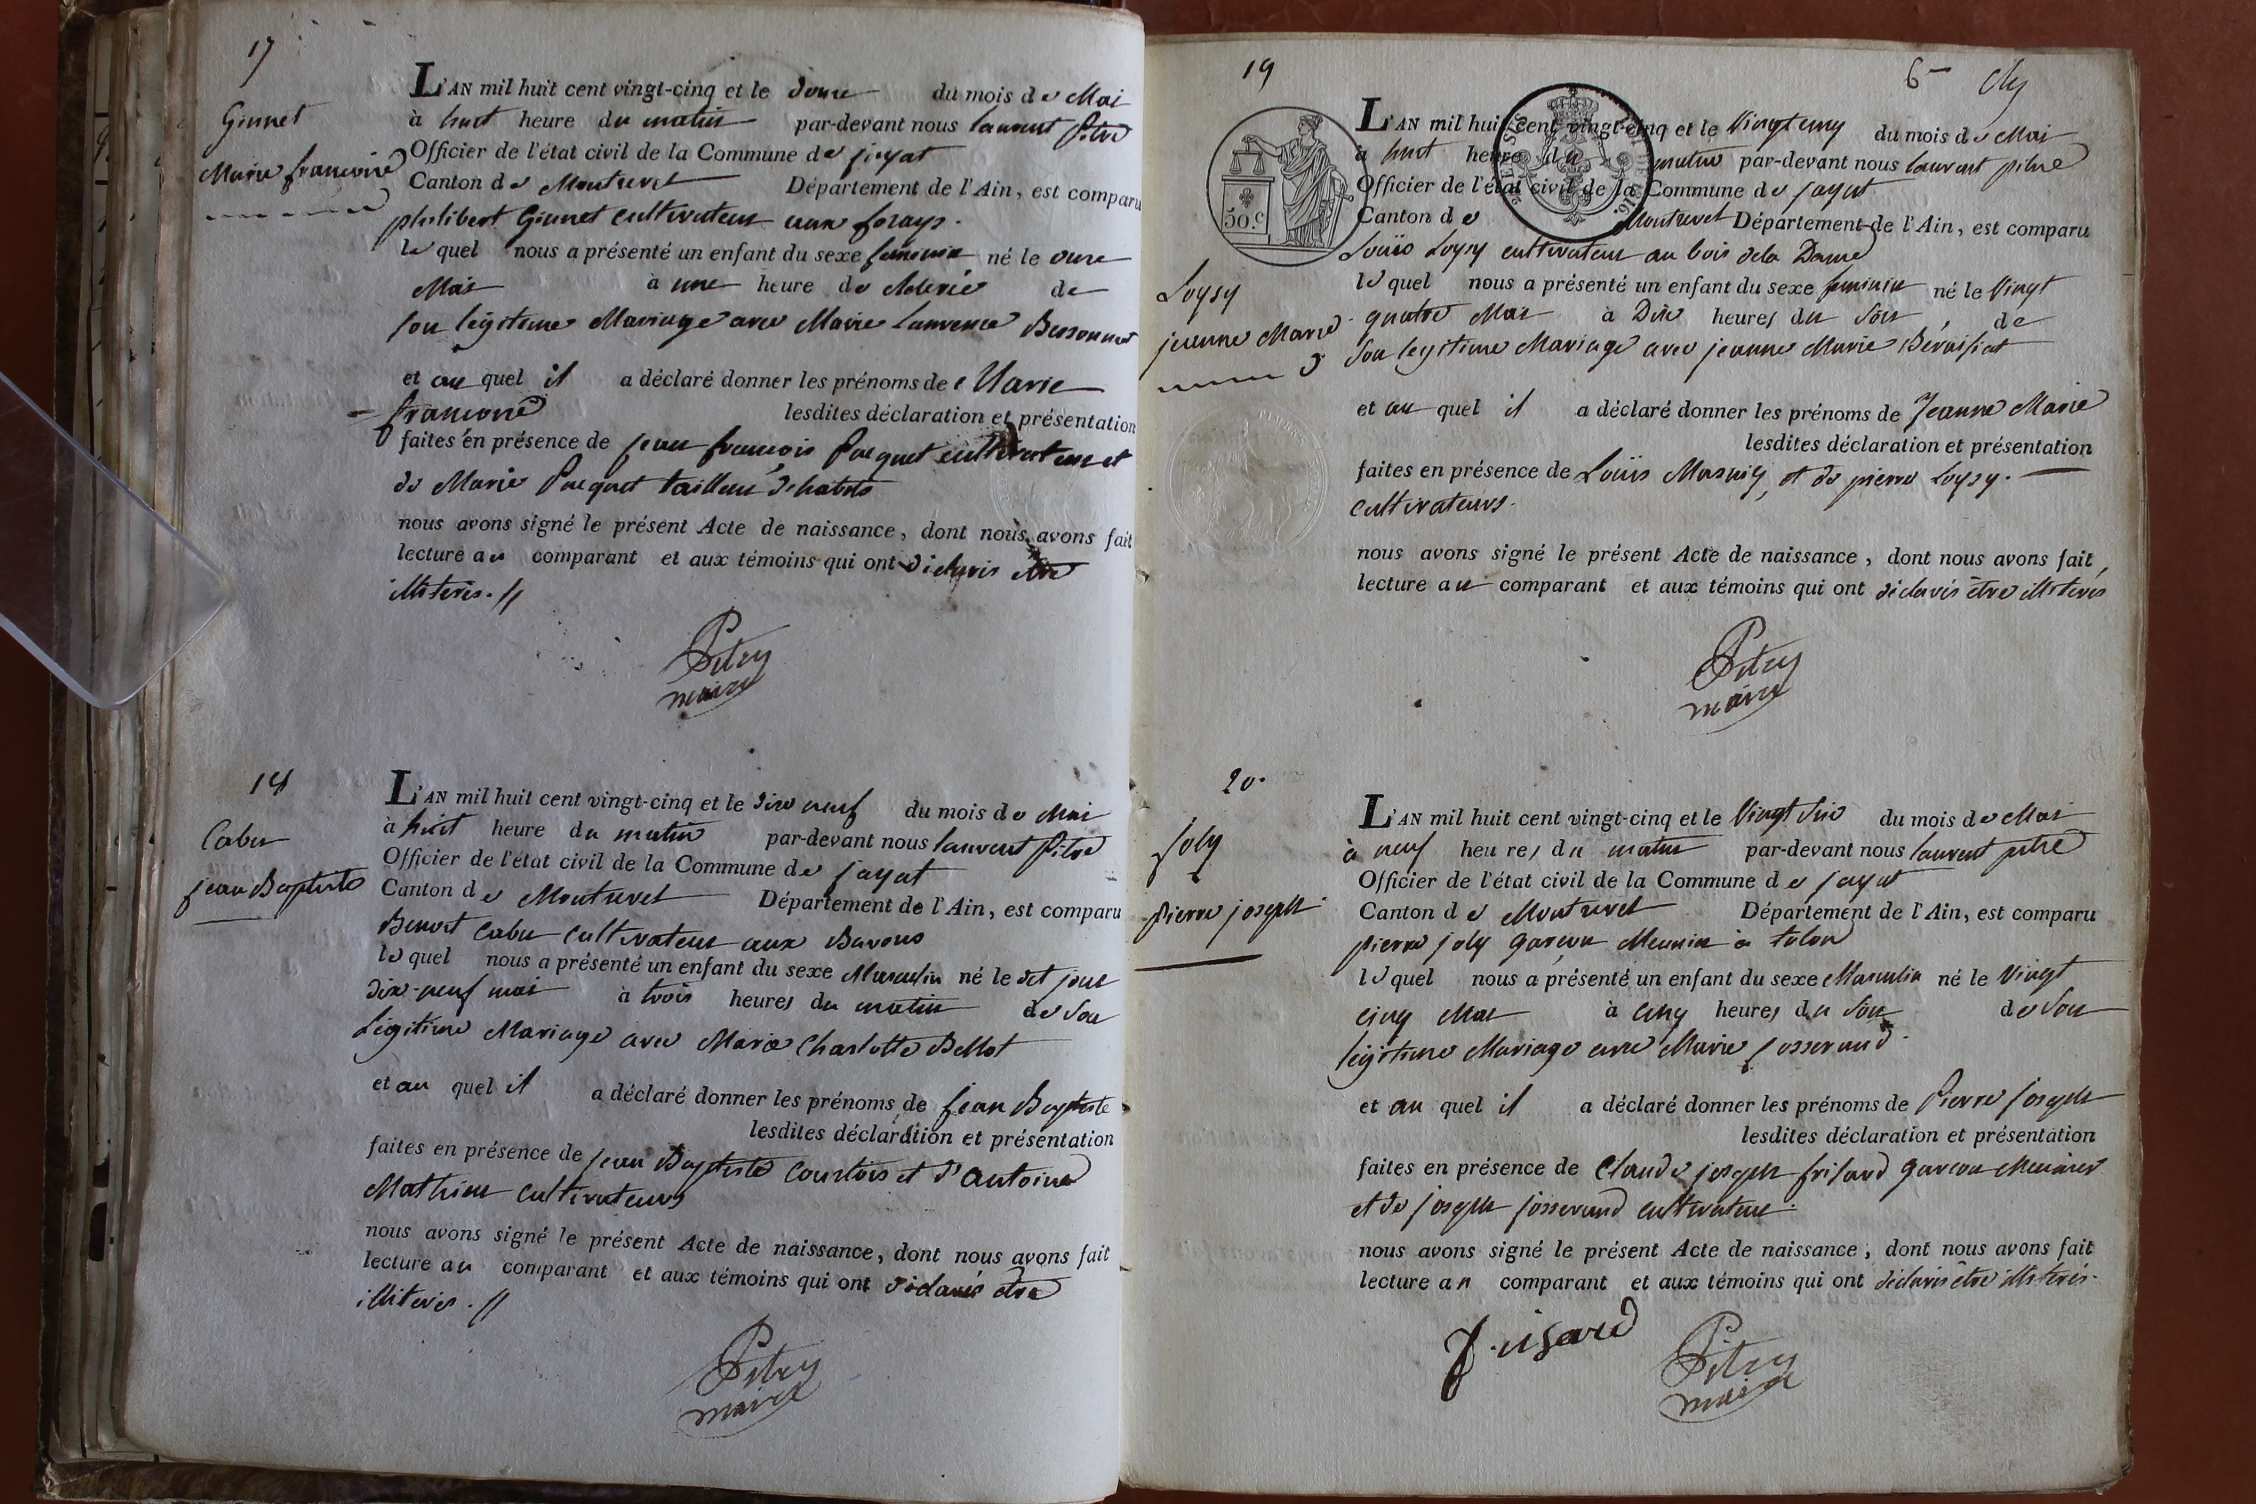 17
Giunet
Marie francoise
L'AN mil huit cent vingt-cinq et le douze du mois de Mai
à huit heure du matin par-devant nous laurent Pitre
Officier de l'état civil de la Commune de jayat
Canton de Montrevel Département de l'Ain, est comparu
philibert Giunet cultivateur aux forays.
le quel nous a présenté un enfant du sexe feminin né le onze
Mai à une heure de de
son légitime Mariage avec Marie Laurence Buisonnet
et au quel il a déclaré donner les prénoms de Marie
francoise lesdites déclaration et présentation
faites en présence de jean francois Pacquet cultivateur et
de Marie Pacquet tailleur d'habits
nous avons signé le présent Acte de naissance, dont nous avons fait
lecture au comparant et aux témoins qui ont déclarés être
illiterés.
Pitre
maire
18
Cabu
jean Baptiste
L'AN mil huit cent vingt-cinq et le dix neuf du mois de Mai
à huit heure du matin par-devant nous laurent Pitre
Officier de l'état civil de la Commune de jayat
Canton de Montrevel Département de l'Ain, est comparu
Benoit Cabu cultivateur aux Barons
le quel nous a présenté un enfant du sexe Masculin né le dit jour
dix-neuf mai à trois heures du matin de son
Légitime Mariage avec Marie Charlotte Bellot
et au quel il a déclaré donner les prénoms de jean Baptiste
lesdites déclaration et présentation
faites en présence de jean Baptiste Courtois et d'antoine
Mathieu cultivateurs
nous avons signé le présent Acte de naissance, dont nous avons fait
lecture au comparant et aux témoins qui ont déclarés être
illiterés.
Pitre
maire
19
6
50.c
Loysy
jeanne Marie
L'AN mil huit cent vingt-cinq et le Vingt cinq du mois de Mai
à huit heure du matin par-devant nous laurent pitre
Officier de l'état civil de la Commune de jayat
Canton de Montrevel Département de l'Ain, est comparu
Louis Loysy cultivateur au bois de la Dame
le quel nous a présenté un enfant du sexe feminin né le Vingt
quatre Mai à Dix heures du Soir de
Son legitime Mariage avec jeanne Marie Béraisiat
et au quel il a déclaré donner les prénoms de Jeanne Marie
lesdites déclaration et présentation
faites en présence de Louis Masuiy, et de pierre Loysy.
cultivateurs.
nous avons signé le présent Acte de naissance, dont nous avons fait
lecture au comparant et aux témoins qui ont déclarés être illiterés
Pitre
maire
20.
joly
pierre joseph
L'AN mil huit cent vingt-cinq et le Vingt Six du mois de Mai
à neuf heures du matin par-devant nous laurent pitre
Officier de l'état civil de la Commune de jayat
Canton de Montrevel Département de l'Ain, est comparu
pierre joly garcon Meunier à tolon
le quel nous a présenté un enfant du sexe Masculin né le Vingt
cinq Mai à cinq heures du Soir de Son
légitime Mariage avec Marie josserand.
et au quel il a déclaré donner les prénoms de Pierre joseph
lesdites déclaration et présentation
faites en présence de Claude joseph frisard garcon Meunier
et de joseph josserand cultivateur.
nous avons signé le présent Acte de naissance, dont nous avons fait
lecture au comparant et aux témoins qui ont déclarés être illiterés.
Pitre
maire